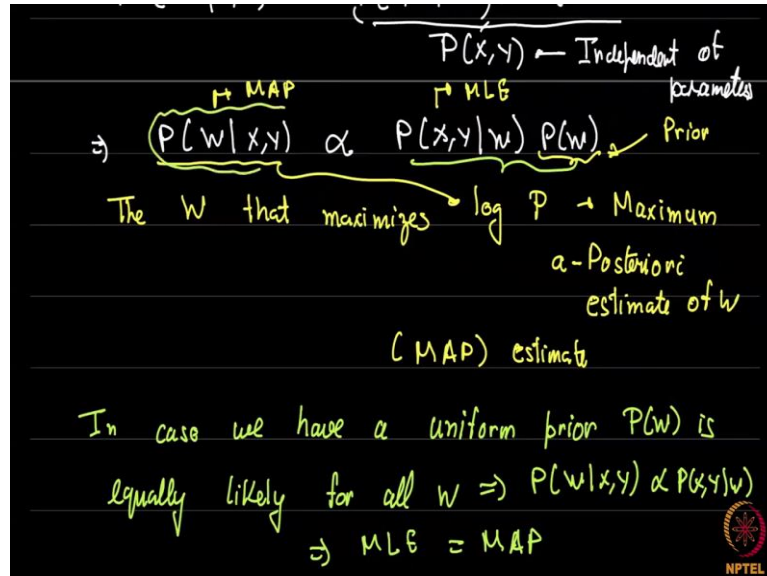 P(X,Y) — Independent of
parameters
MAP MLE
⇒ P(W|X,Y) ∝ P(X,Y|W) P(W) Prior
The W that maximizes log P → Maximum
a-Posteriori
estimate of W
(MAP) estimate
In case we have a uniform prior P(W) is
equally likely for all W ⇒ P(W|X,Y) ∝ P(X,Y|W)
⇒ MLE = MAP
NPTEL